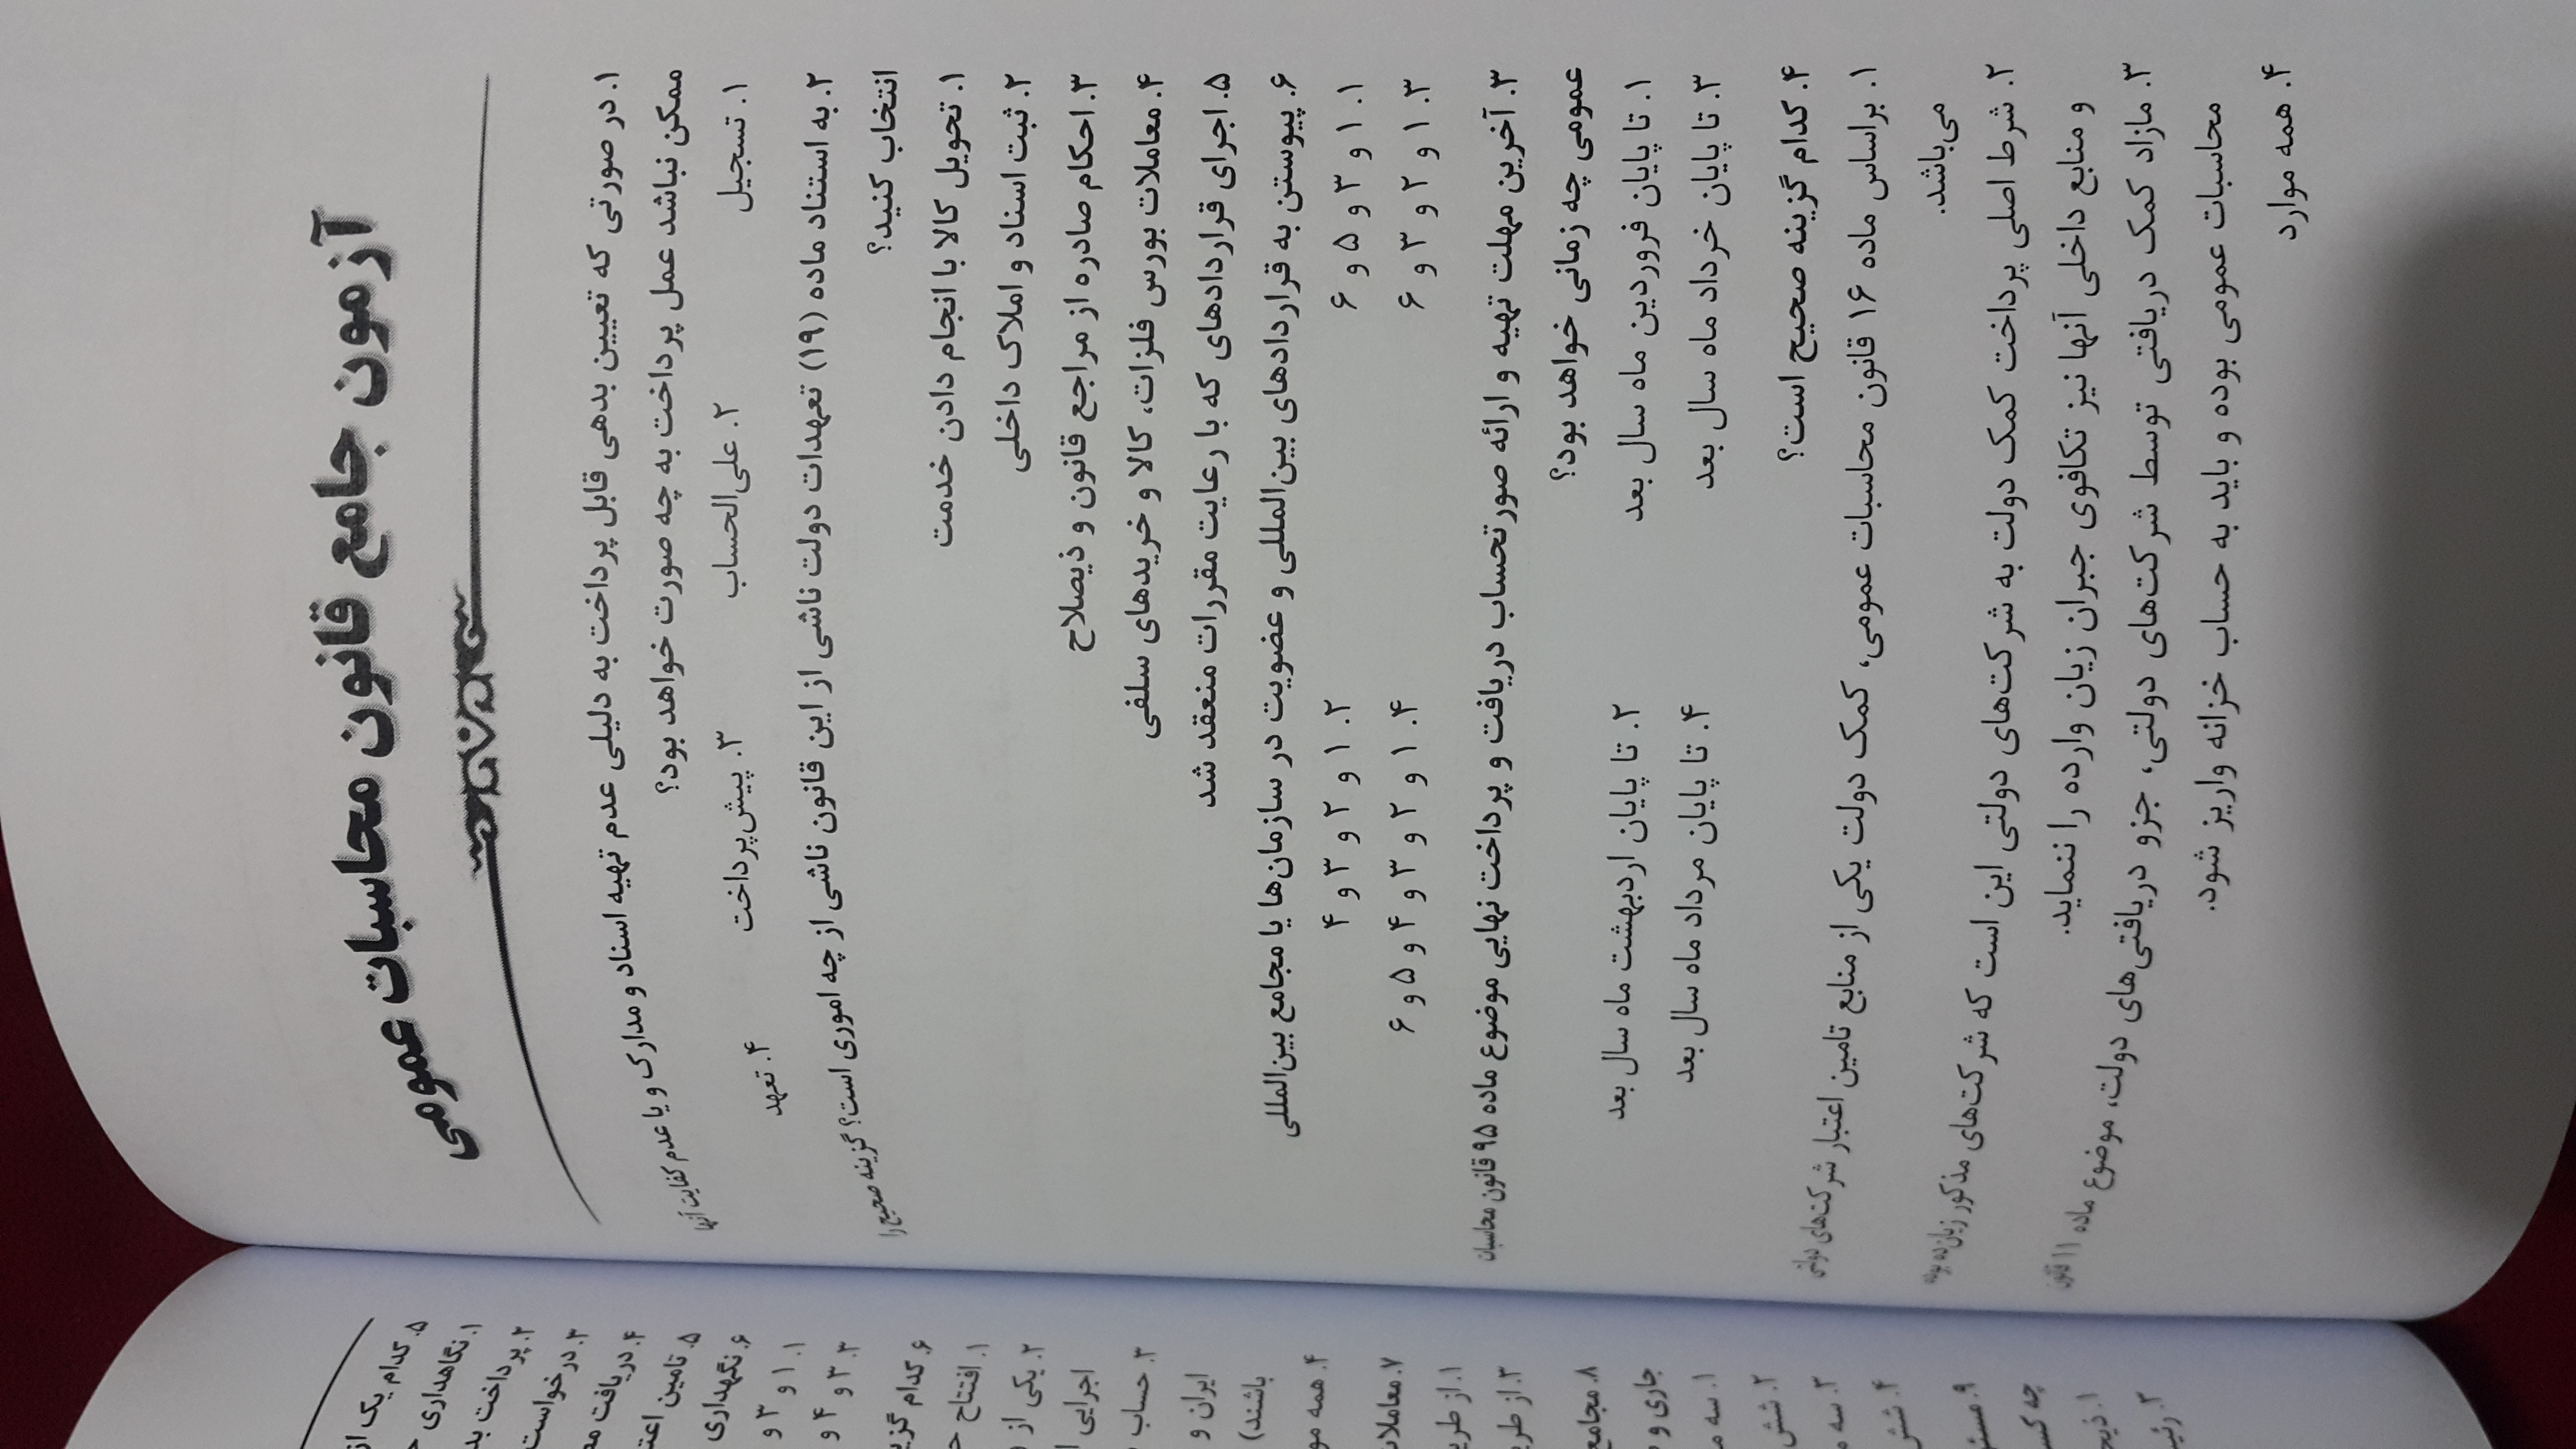 آزمون جامع قانون محاسبات عمومی
۱. در صورتی که تعیین بدهی قابل پرداخت به دلیلی عدم تهیه اسناد و مدارک و یا عدم کفایت آنها
ممکن نباشد عمل پرداخت به چه صورت خواهد بود؟
۱. تسجیل ۲. علی‌الحساب ۳. پیش‌پرداخت ۴. تعهد
۲. به استناد ماده (۱۹) تعهدات دولت ناشی از این قانون ناشی از چه اموری است؟ گزینه صحیح را
انتخاب کنید؟
۱. تحویل کالا با انجام دادن خدمت
۲. ثبت اسناد و املاک داخلی
۳. احکام صادره از مراجع قانون و ذیصلاح
۴. معاملات بورس فلزات، کالا و خریدهای سلفی
۵. اجرای قراردادهای که با رعایت مقررات منعقد شد
۶. پیوستن به قراردادهای بین‌المللی و عضویت در سازمان‌ها یا مجامع بین‌المللی
۱. ۱ و ۳ و ۵ و ۶ ۲. ۱ و ۲ و ۳ و ۴
۳. ۱ و ۲ و ۳ و ۶ ۴. ۱ و ۲ و ۳ و ۴ و ۵ و ۶
۳. آخرین مهلت تهیه و ارائه صورتحساب دریافت و پرداخت نهایی موضوع ماده ۹۵ قانون محاسبات
عمومی چه زمانی خواهد بود؟
۱. تا پایان فروردین ماه سال بعد ۲. تا پایان اردیبهشت ماه سال بعد
۳. تا پایان خرداد ماه سال بعد ۴. تا پایان مرداد ماه سال بعد
۴. کدام گزینه صحیح است؟
۱. براساس ماده ۱۶ قانون محاسبات عمومی، کمک دولت یکی از منابع تامین اعتبار شرکت‌های دولتی
می‌باشد.
۲. شرط اصلی پرداخت کمک دولت به شرکت‌های دولتی این است که شرکت‌های مذکور زیان‌ده بوده
و منابع داخلی آنها نیز تکافوی جبران زیان وارده را ننماید.
۳. مازاد کمک دریافتی توسط شرکت‌های دولتی، جزو دریافتی‌های دولت، موضوع ماده ۱۱ قانون
محاسبات عمومی بوده و باید به حساب خزانه واریز شود.
۴. همه موارد
۵. کدام یک از
۱. نگاهداری
۲. پرداخت
۳. درخواست
۴. دریافت
۵. تامین
۶. نگهداری
۱. ۱ و ۳ و
۳. ۳ و ۴ و
۶. کدام
۱. افتتاح
۲. یکی از
اجرایی
۳. حساب
ایران و
باشند)
۴. همه
۷. معاملات
۱. از
۳. از
۸. مجامع
جاری و
۱. سه
۲. شش
۳. سه
۴. شش
۹.
چه
۱.
۲.